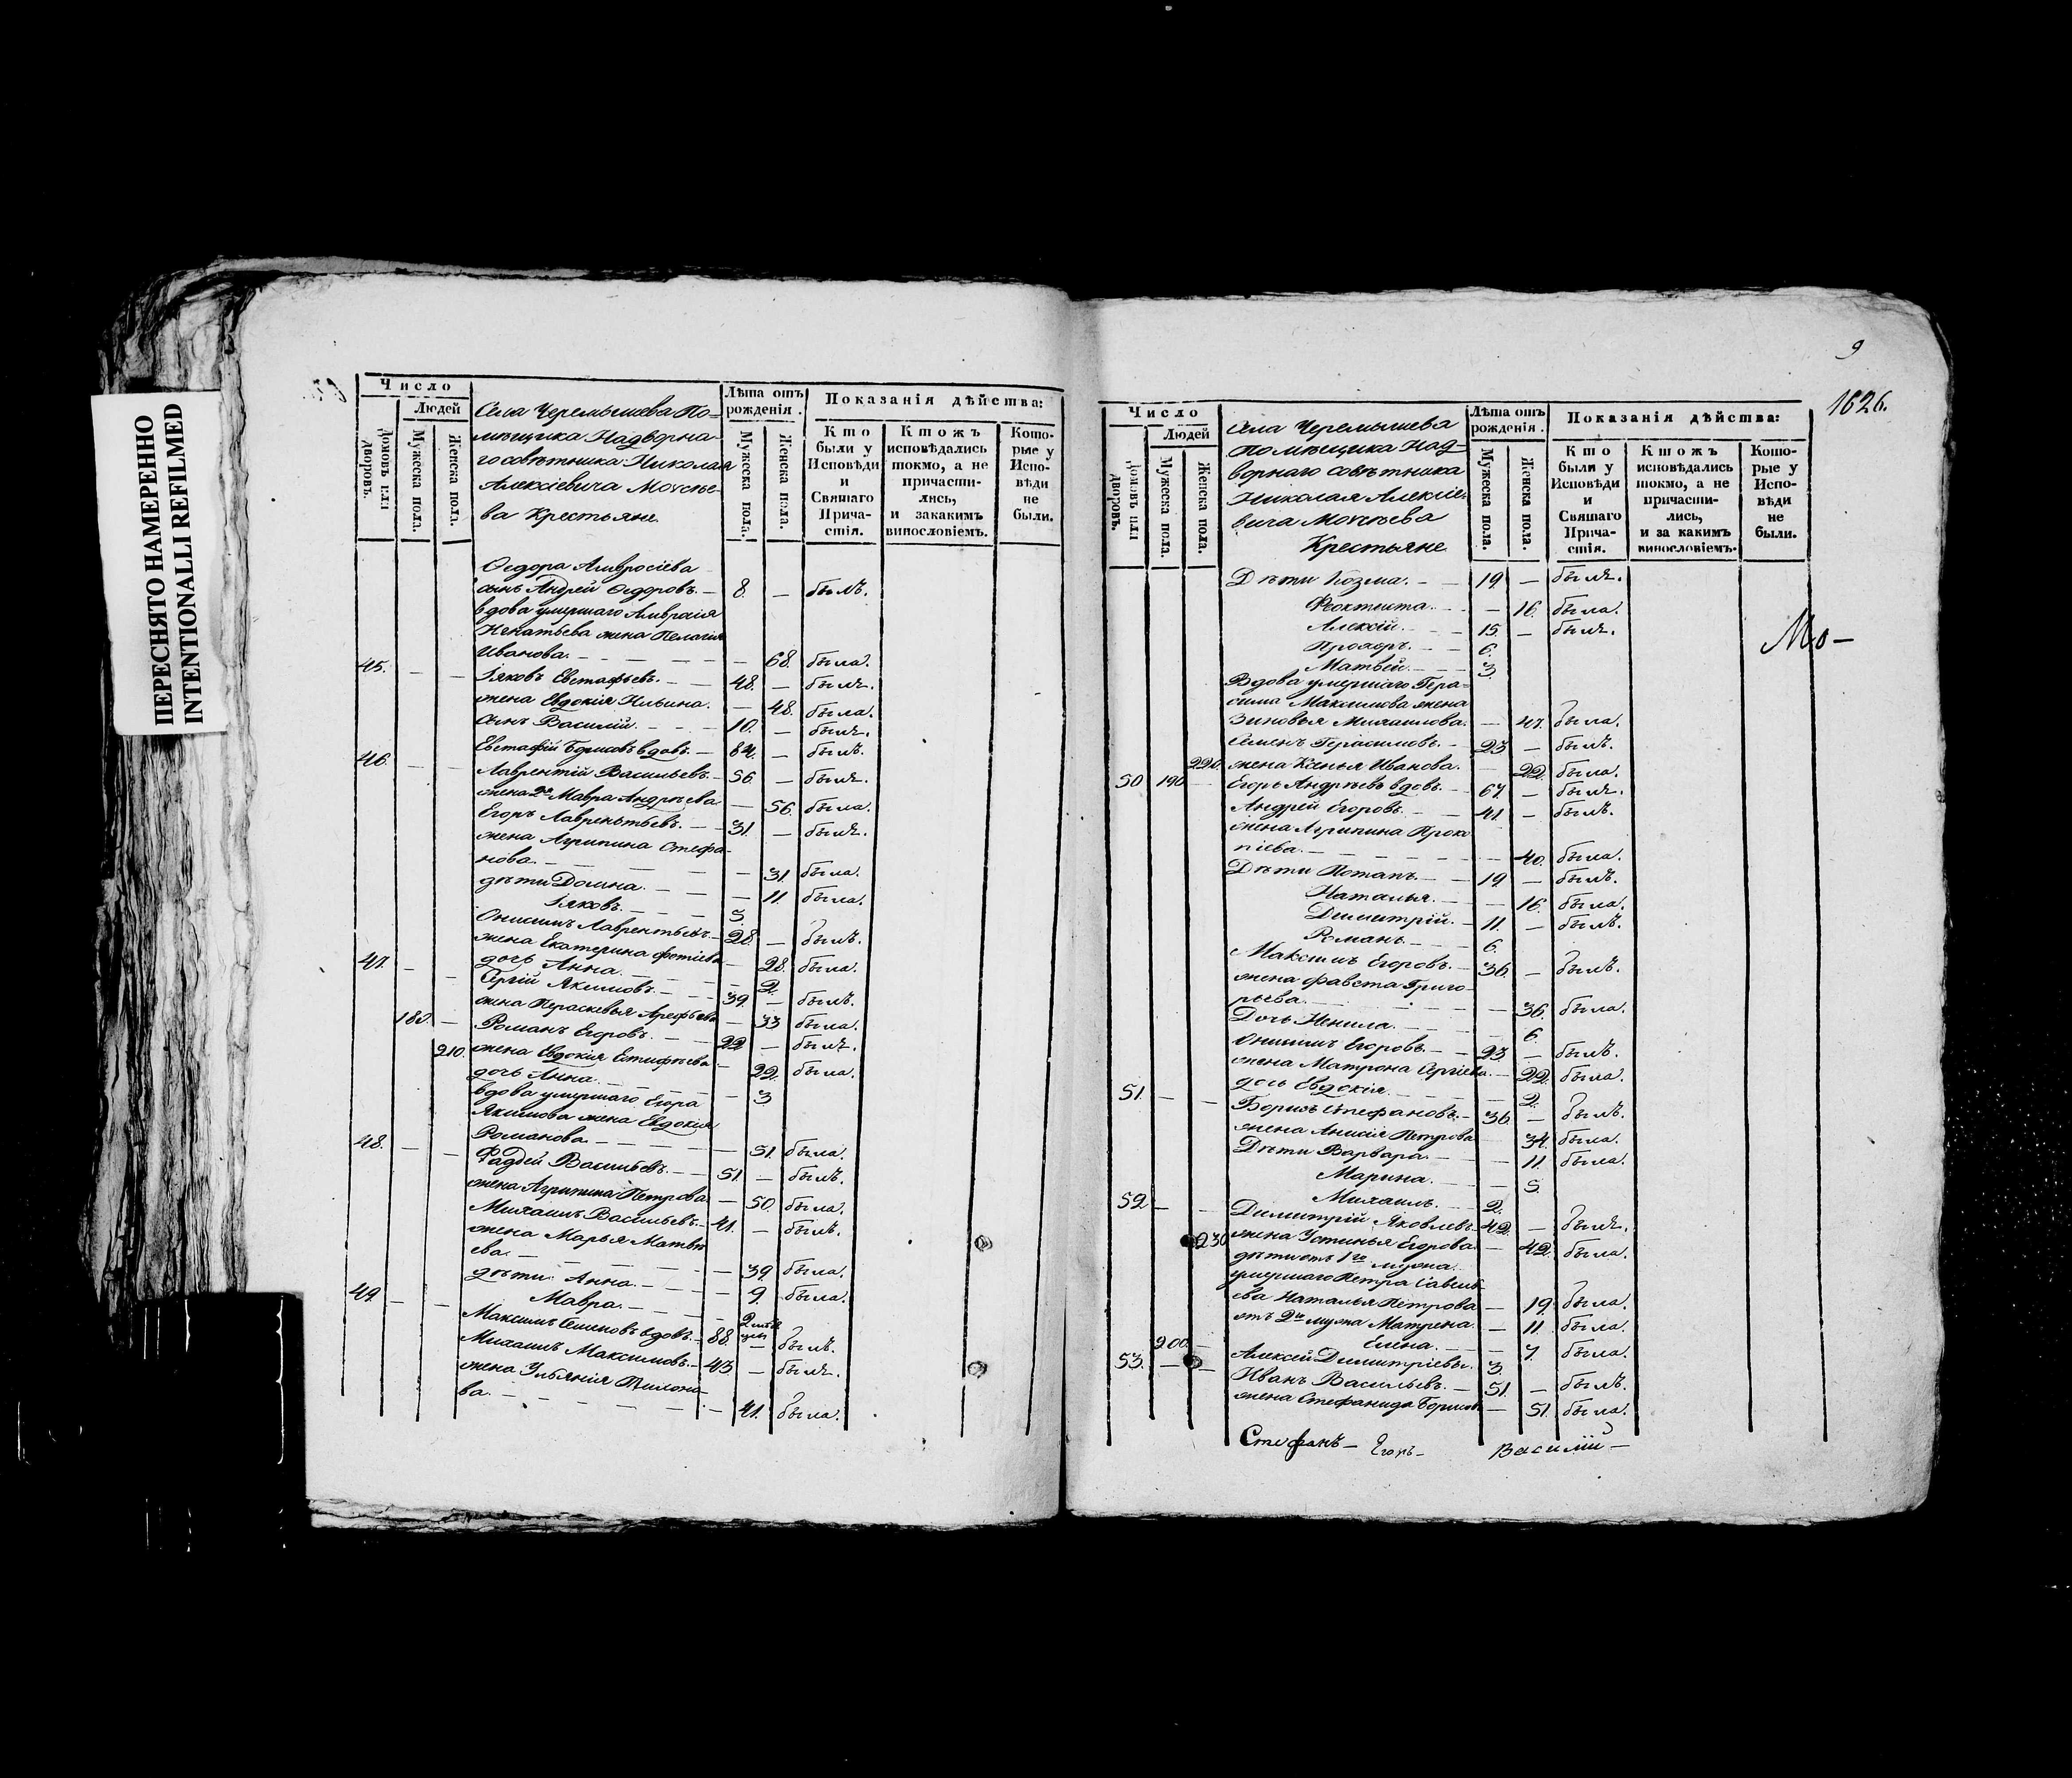 ПЕРЕСНЯТО НАМЕРЕННО
INTENTIONALLI REFILMED
Число
Людей
Домовъ или дворовъ.
Мужеска пола.
Женска пола.
Села Черемышева По=
мѣщика Надворна
го совѣтника Николая
Алексіевича
ва Крестьяне
Лѣта отъ рожденія.
Мужеска пола.
Женска пола.
Показанія дѣйства:
Кто были у Исповѣди и Святаго Прича-стія.
Ктожъ исповѣдались токмо, а не причасти-лись, и закакимъ винословіемъ.
Кото-рые у Испо-вѣди не были.
Ѳедора Амвросіева
сынъ Андрей Ѳедоровъ. 8. — былъ.
вдова умершаго Амвросія
Игнатьева жена Пелагія
Иванова. — 68. была.
45. — — Іяковъ Евстафьевъ. 48. — былъ.
жена Евдокія Ильина. — 48. была.
сынъ Василій. 10. — былъ.
Евстафій Борисовъ вдовъ. 84. — былъ.
46. — — Лаврентій Васильевъ. 56. — былъ.
жена 2я Мавра Андрѣева — 56. была.
Егоръ Лаврентьевъ. 31. — былъ.
жена Агрипина Стефа-
нова. — 31. была.
дѣти Домна. — 11. была.
Іяковъ. 5.
Онисимъ Лаврентьевъ. 28. — былъ.
жена Екатерина Фотіева — 28. была.
дочь Анна. — 2.
47. — — Сергій Якимовъ. 39. — былъ.
жена Параскевья Арефьева — 33 была.
180. — Романъ Егоровъ. 22 — былъ.
210. жена Евдокія — 22. была.
дочь Анна. — 3
вдова умершаго Егора
Якимова жена Евдокія
Романова. — 51. была.
48. — — Фадей Васильевъ. 51. — былъ.
жена Агрипина Петрова — 50. была.
Михаилъ Васильевъ. 41. — былъ.
жена Марья Матвѣ
ева. — 39. была.
дѣти Анна. — 9. была.
Мавра. — 2
49. — — Максимъ Семеновъ вдовъ. 88. — былъ.
Михаилъ Максимовъ. 43 — былъ.
жена Ульянія Филоно
ва. — 41. была.
9
1626.
Число
Людей
Домовъ или дворовъ.
Мужеска пола.
Женска пола.
Села Черемышева
Помѣщика Над=
ворнаго совѣтника
Николая Алексіе-
вича
Крестьяне
Лѣта отъ рожденія.
Мужеска пола.
Женска пола.
Показанія дѣйства:
Кто были у Исповѣди и Святаго Прича-стія.
Ктожъ исповѣдались токмо, а не причасти-лись, и за какимъ винословіемъ.
Кото-рые у Испо-вѣди не были.
Дѣти Козма. 19. — былъ.
Феоктиста. — 16. была.
Алексій. 15. — былъ.
Мо-
Прохоръ. 6.
Матвей. 3.
Вдова умершаго Гера=
сима Максимова жена
Зиновья Михаилова. — 47. была.
Семенъ Герасимовъ. 23 — былъ.
220. жена Ксенья Иванова. — 22. была.
50 190 — Егоръ Андрѣевъ вдовъ. 67 — былъ.
Андрей Егоровъ. 41. — былъ.
жена Агрипина Проко
піева. — 40. была.
Дѣти Потапъ. 19. — былъ.
Наталья. — 16. была.
Димитрій. 11. — былъ.
Романъ. 6.
Максимъ Егоровъ. 36. — былъ.
жена Фавста Григо-
рьева. — 36. была.
Дочь Ненила. — 6.
Онисимъ Егоровъ. 23. — былъ.
жена Матрона Сергіева. — 22. была.
дочь Евдокія. — 2.
51. — — Борисъ Стефановъ. 36. — былъ.
жена Анисія Петрова — 34. была.
Дѣти Варвара. — 11. была.
Марина. — 5.
Михаилъ. 2.
52 — — Димитрій Яковлевъ. 42. — былъ.
230 жена Устинья Егорова. — 42. была.
дѣти отъ 1го мужа
умершаго Петра Савель
ева Наталья Петрова — 19. была.
отъ 2го мужа Матрена. — 11. была.
Елена. — 7. была.
200. — Алексей Димитріевъ. 3.
53. — — Иванъ Васильевъ. 51. — былъ.
жена Стефанида Борисов. — 51. была.
Стефанъ- Егоръ- Василій-